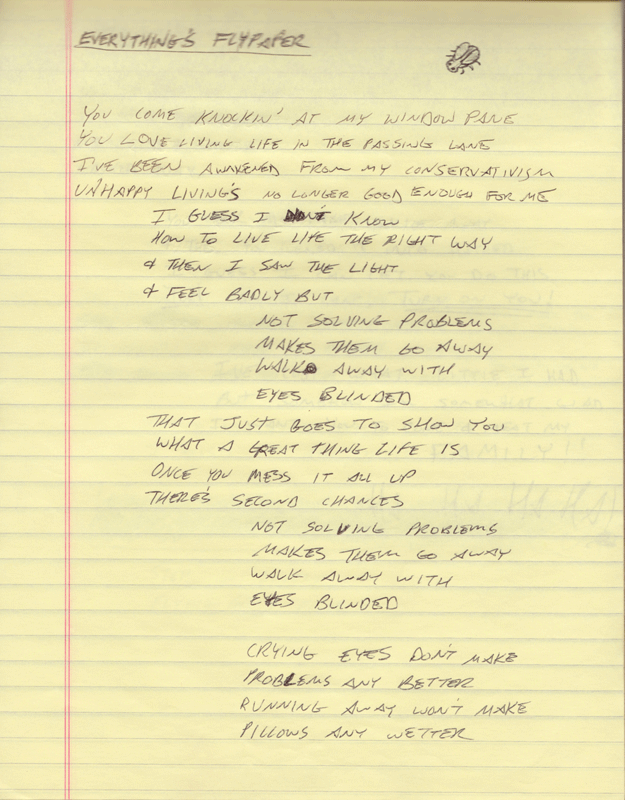 EVERYTHING'S FLYPAPER
YOU COME KNOCKIN' AT MY WINDOW PANE
YOU LOVE LIVING LIFE IN THE PASSING LANE
I'VE BEEN AWAKENED FROM MY CONSERVATIVISM
UNHAPPY LIVING'S NO LONGER GOOD ENOUGH FOR ME
I GUESS I DIDN'T KNOW
HOW TO LIVE LIFE THE RIGHT WAY
& THEN I SAW THE LIGHT
& FEEL BADLY BUT
NOT SOLVING PROBLEMS
MAKES THEM GO AWAY
WALK AWAY WITH
EYES BLINDED
THAT JUST GOES TO SHOW YOU
WHAT A GREAT THING LIFE IS
ONCE YOU MESS IT ALL UP
THERE'S SECOND CHANCES
NOT SOLVING PROBLEMS
MAKES THEM GO AWAY
WALK AWAY WITH
EYES BLINDED
CRYING EYES DON'T MAKE
PROBLEMS ANY BETTER
RUNNING AWAY WON'T MAKE
PILLOWS ANY WETTER